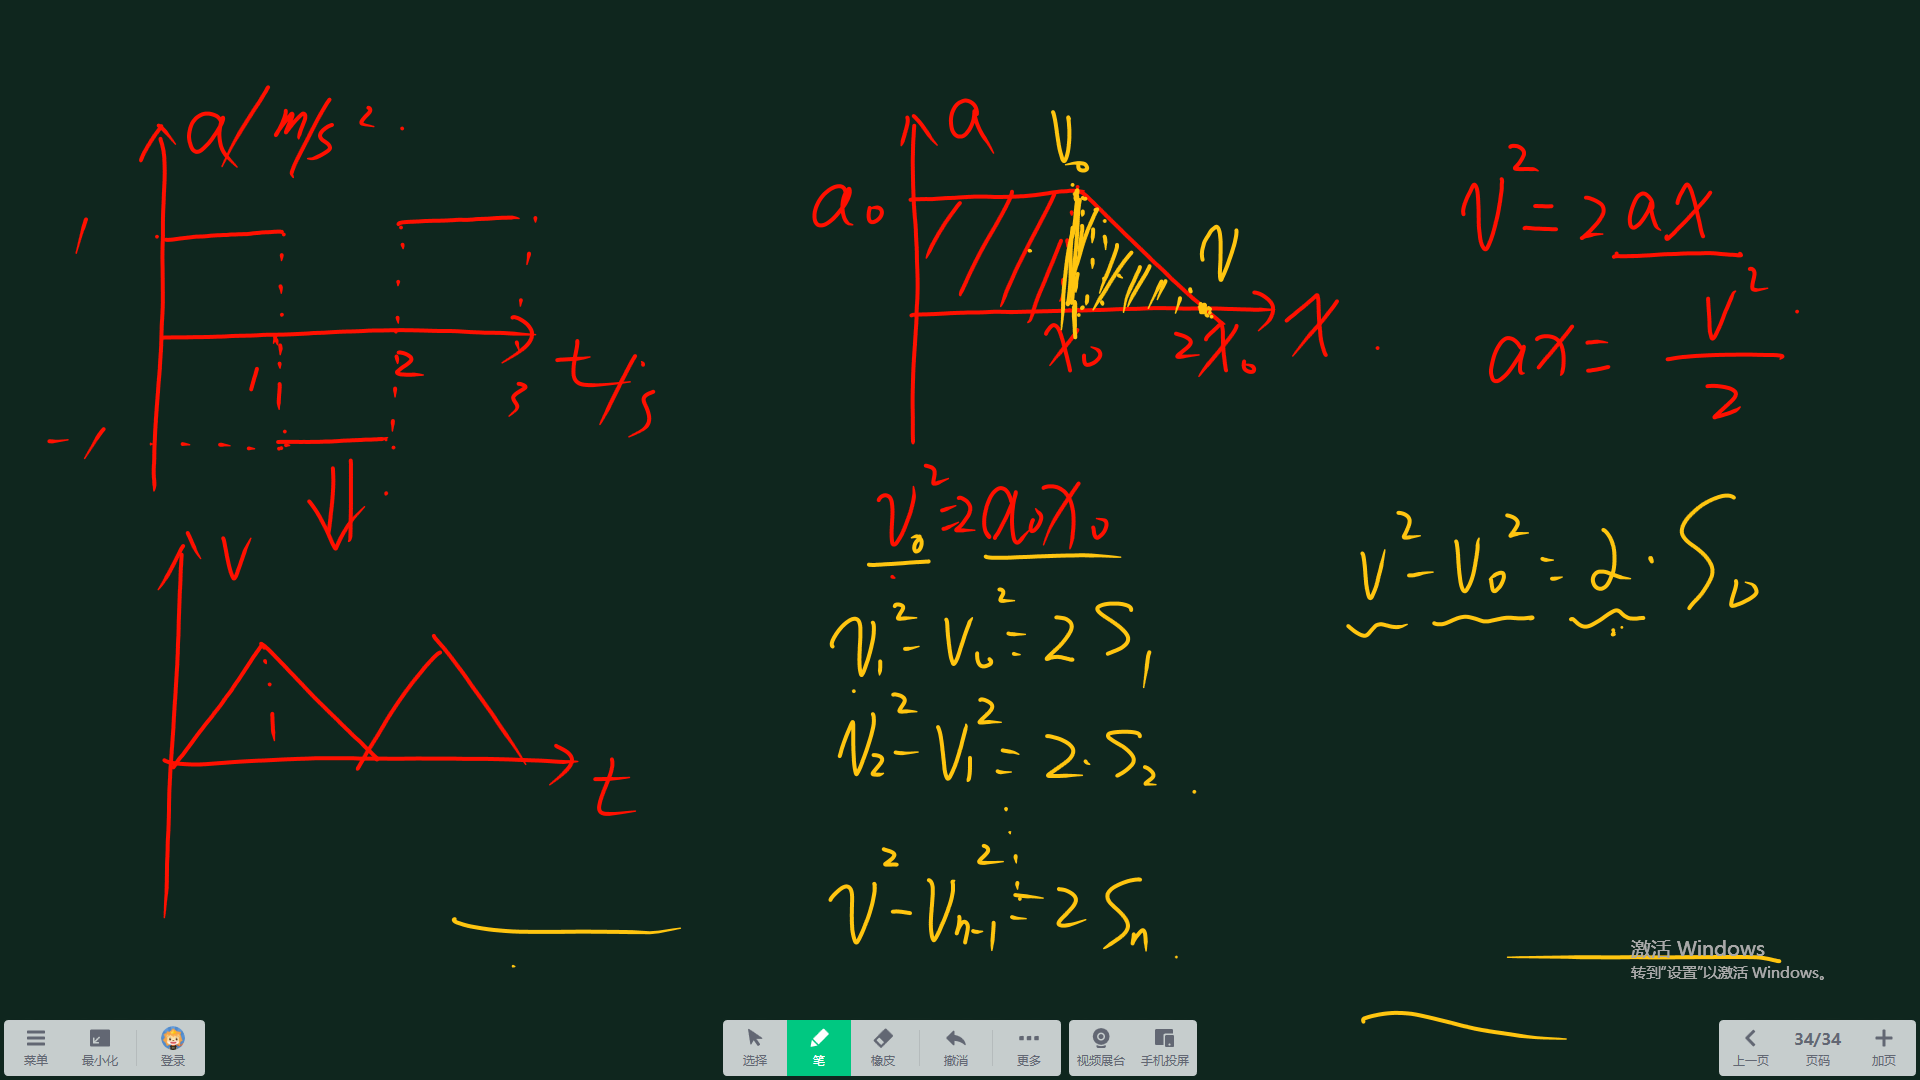 a/m/s²
1
1
2
3
t/s
-1
v
1
t
a
a₀
V₀
V
x₀
2x₀
x
v₀²=2a₀x₀
v₁²-v₀²=2S₁
v₂²-v₁²=2·S₂
v²-vₙ₋₁²=2Sₙ
v²=2ax
ax=v²/2
v²-v₀²=2·S
激活 Windows
转到“设置”以激活 Windows。
菜单
最小化
登录
选择
笔
橡皮
撤消
更多
视频展台
手机投屏
上一页
34/34
页码
加页